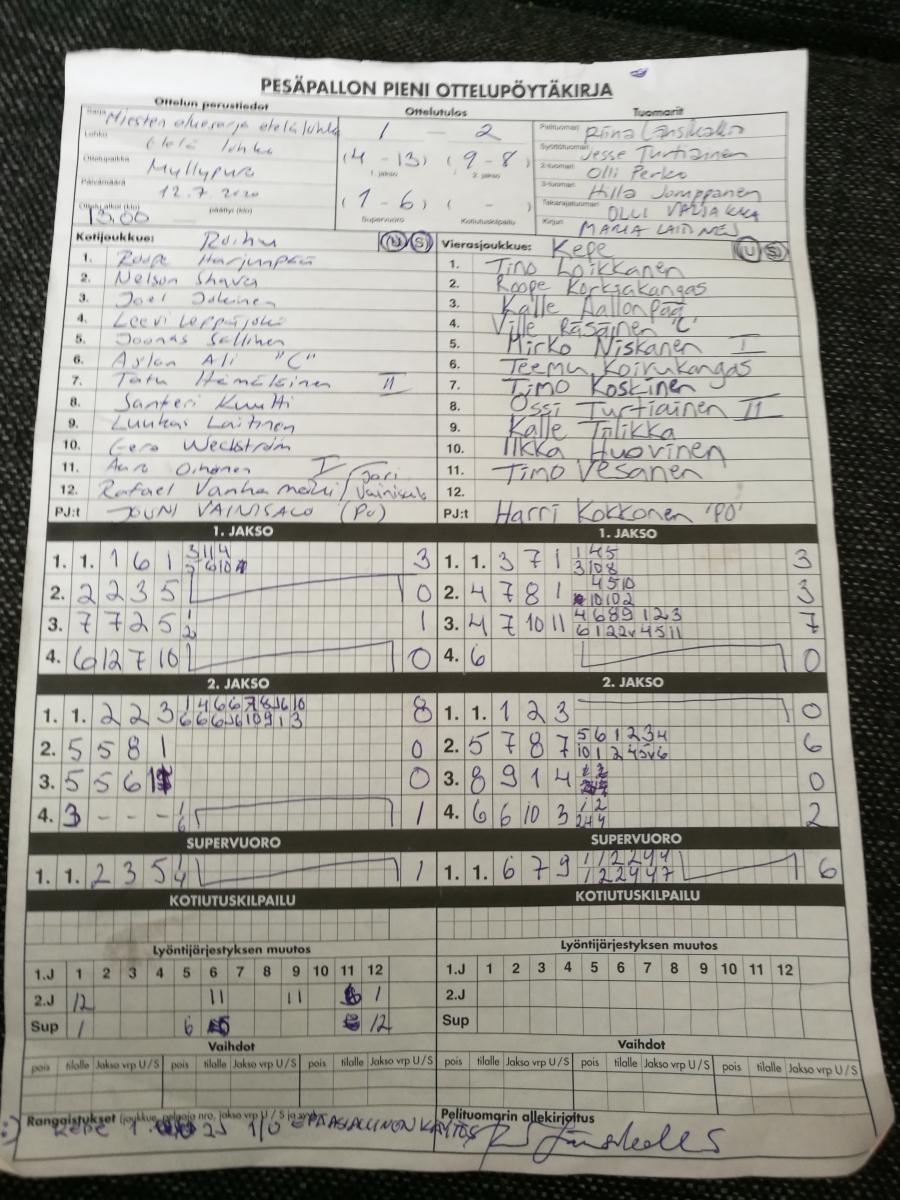 PESÄPALLON PIENI OTTELUPÖYTÄKIRJA
Ottelun perustiedot
Ottelutulos
Tuomarit
Sarja Miesten aluesarja etelä lohko
Lohko Etelä lohko
Ottelupaikka Myllypuro
Päivämäärä 12.7.2020
13.00 päättyi (klo)
1 — 2
(4 - 13) (9 - 8)
1. jakso 2. jakso
(1 - 6) ( - )
Supervuoro Kotiutuskilpailu
Pelituomari Riina Länsikallio
Syöttötuomari Jesse Turtiainen
2-tuomari Olli Perko
3-tuomari Hilla Jomppanen
Takarajatuomari OLLI VALJAKKA
Kirjuri MARIA LAITINEN
Kotijoukkue: Roihu (U) (S)
1. Roope Harjunpää
2. Nelson Shava
3. Joel Jokinen
4. Leevi Leppäjoki
5. Joonas Sallinen
6. Aslan Ali "C"
7. Tatu Hämäläinen II
8. Santeri Kuutti
9. Luukas Laitinen
10. Eero Weckström
11. Aaro Oihonen I
12. Rafael Vanhamäki / Jari Vainisalo
PJ:t JOUNI VAINISALO (PU)
Vierasjoukkue: Kepe (U) (S)
1. Timo Loikkanen
2. Roope Korkiakangas
3. Kalle Aallonpää
4. Ville Räsäinen 'C'
5. Mirko Niskanen I
6. Teemu Koivukangas
7. Timo Koskinen
8. Ossi Turtiainen II
9. Kalle Tilikka
10. Ilkka Huovinen
11. Timo Vesanen
12.
PJ:t Harri Kokkonen 'PO'
1. JAKSO
1. 1. 1 6 1 3
2. 2 2 3 5 0
3. 7 7 2 5 1
4. 6 12 7 10 0
1. JAKSO
1. 1. 3 7 1 1 4 5 3
3 10 8
2. 4 7 8 1 4 5 10 3
10 10 2
3. 4 7 10 11 4 6 8 9 1 2 3 7
4. 6 0
2. JAKSO
1. 1. 2 2 3 8
2. 5 5 8 1 0
3. 5 5 6 0
4. 3 - - - 1 1
6
2. JAKSO
1. 1. 1 2 3 0
2. 5 7 8 7 5 6 1 2 3 4 6
3. 8 9 1 4 0
4. 6 6 10 3 1 2 2
SUPERVUORO
1. 1. 2 3 5 1 1
4
SUPERVUORO
1. 1. 6 7 9 1 1 2 2 4 4 6
1 2 2 4 4 7
KOTIUTUSKILPAILU
KOTIUTUSKILPAILU
Lyöntijärjestyksen muutos
1.J 1 2 3 4 5 6 7 8 9 10 11 12
2.J 12 11 11 1
Sup 1 6 12
Lyöntijärjestyksen muutos
1.J 1 2 3 4 5 6 7 8 9 10 11 12
2.J
Sup
Vaihdot
pois tilalle Jakso vrp U/S pois tilalle Jakso vrp U/S pois tilalle Jakso vrp U/S
Vaihdot
pois tilalle Jakso vrp U/S pois tilalle Jakso vrp U/S pois tilalle Jakso vrp U/S
Rangaistukset (joukkue, pelaaja nro, jakso vrp U/S ja syy)
KEPE 1. 2J 1/U EPÄASIALLINEN KÄYTÖS
Pelituomarin allekirjoitus